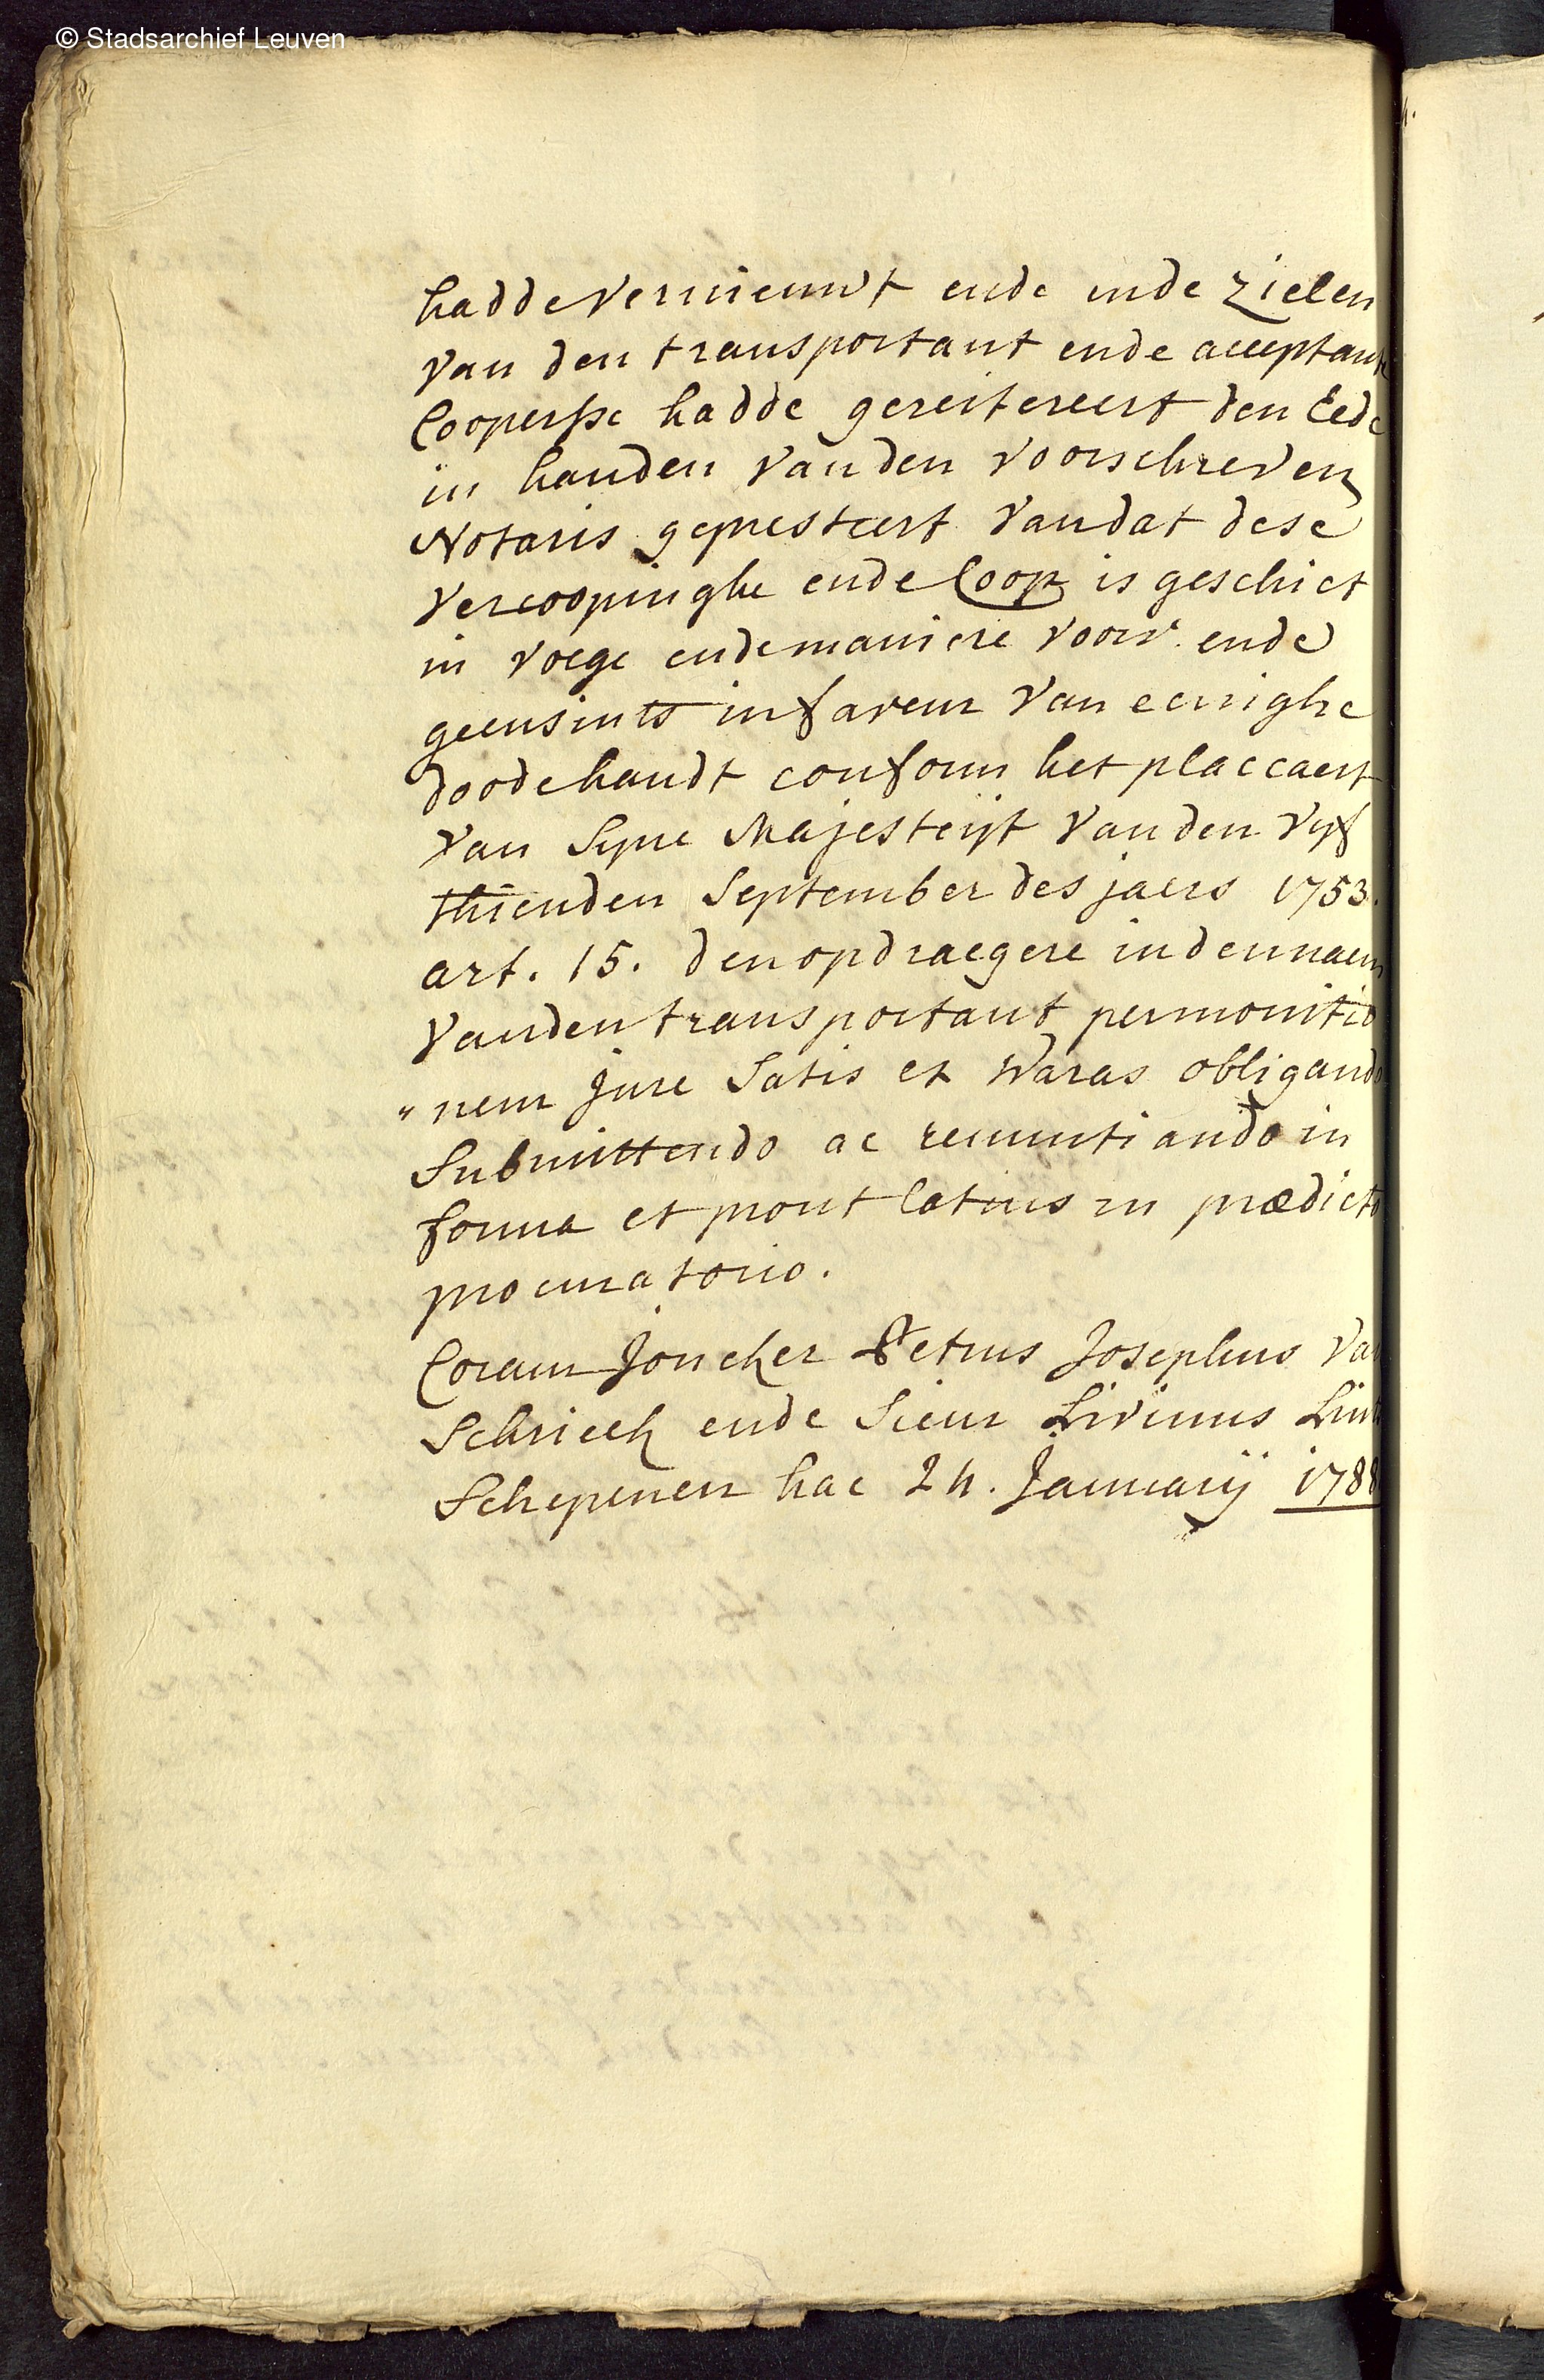 © Stadsarchief Leuven
hadde vernieuwt ende inde zielen
van den transportant ende acceptante
Coopersse hadde gereitereert den Eede
in handen vanden voorschreven
Notaris gepresteert vandat dese
vercoopinghe ende Coop is geschiet
in voege ende maniere voors. ende
geensints in faveur van eenighe
doodehandt conform het placcaert
van Syne Majesteijt vanden vyf
thienden September des jaers 1753.
art. 15. den opdraegere inden naem
vanden transportant per monitio
„nem jure satis et Waras obligando
Submittendo ac renuntiando in
forma et prout latius in prædicto
procuratorio.
Coram Joncker Petrus Josephus Van
Schrieck ende Sieur Livinus
Schepenen hac 24. Januarij 1788